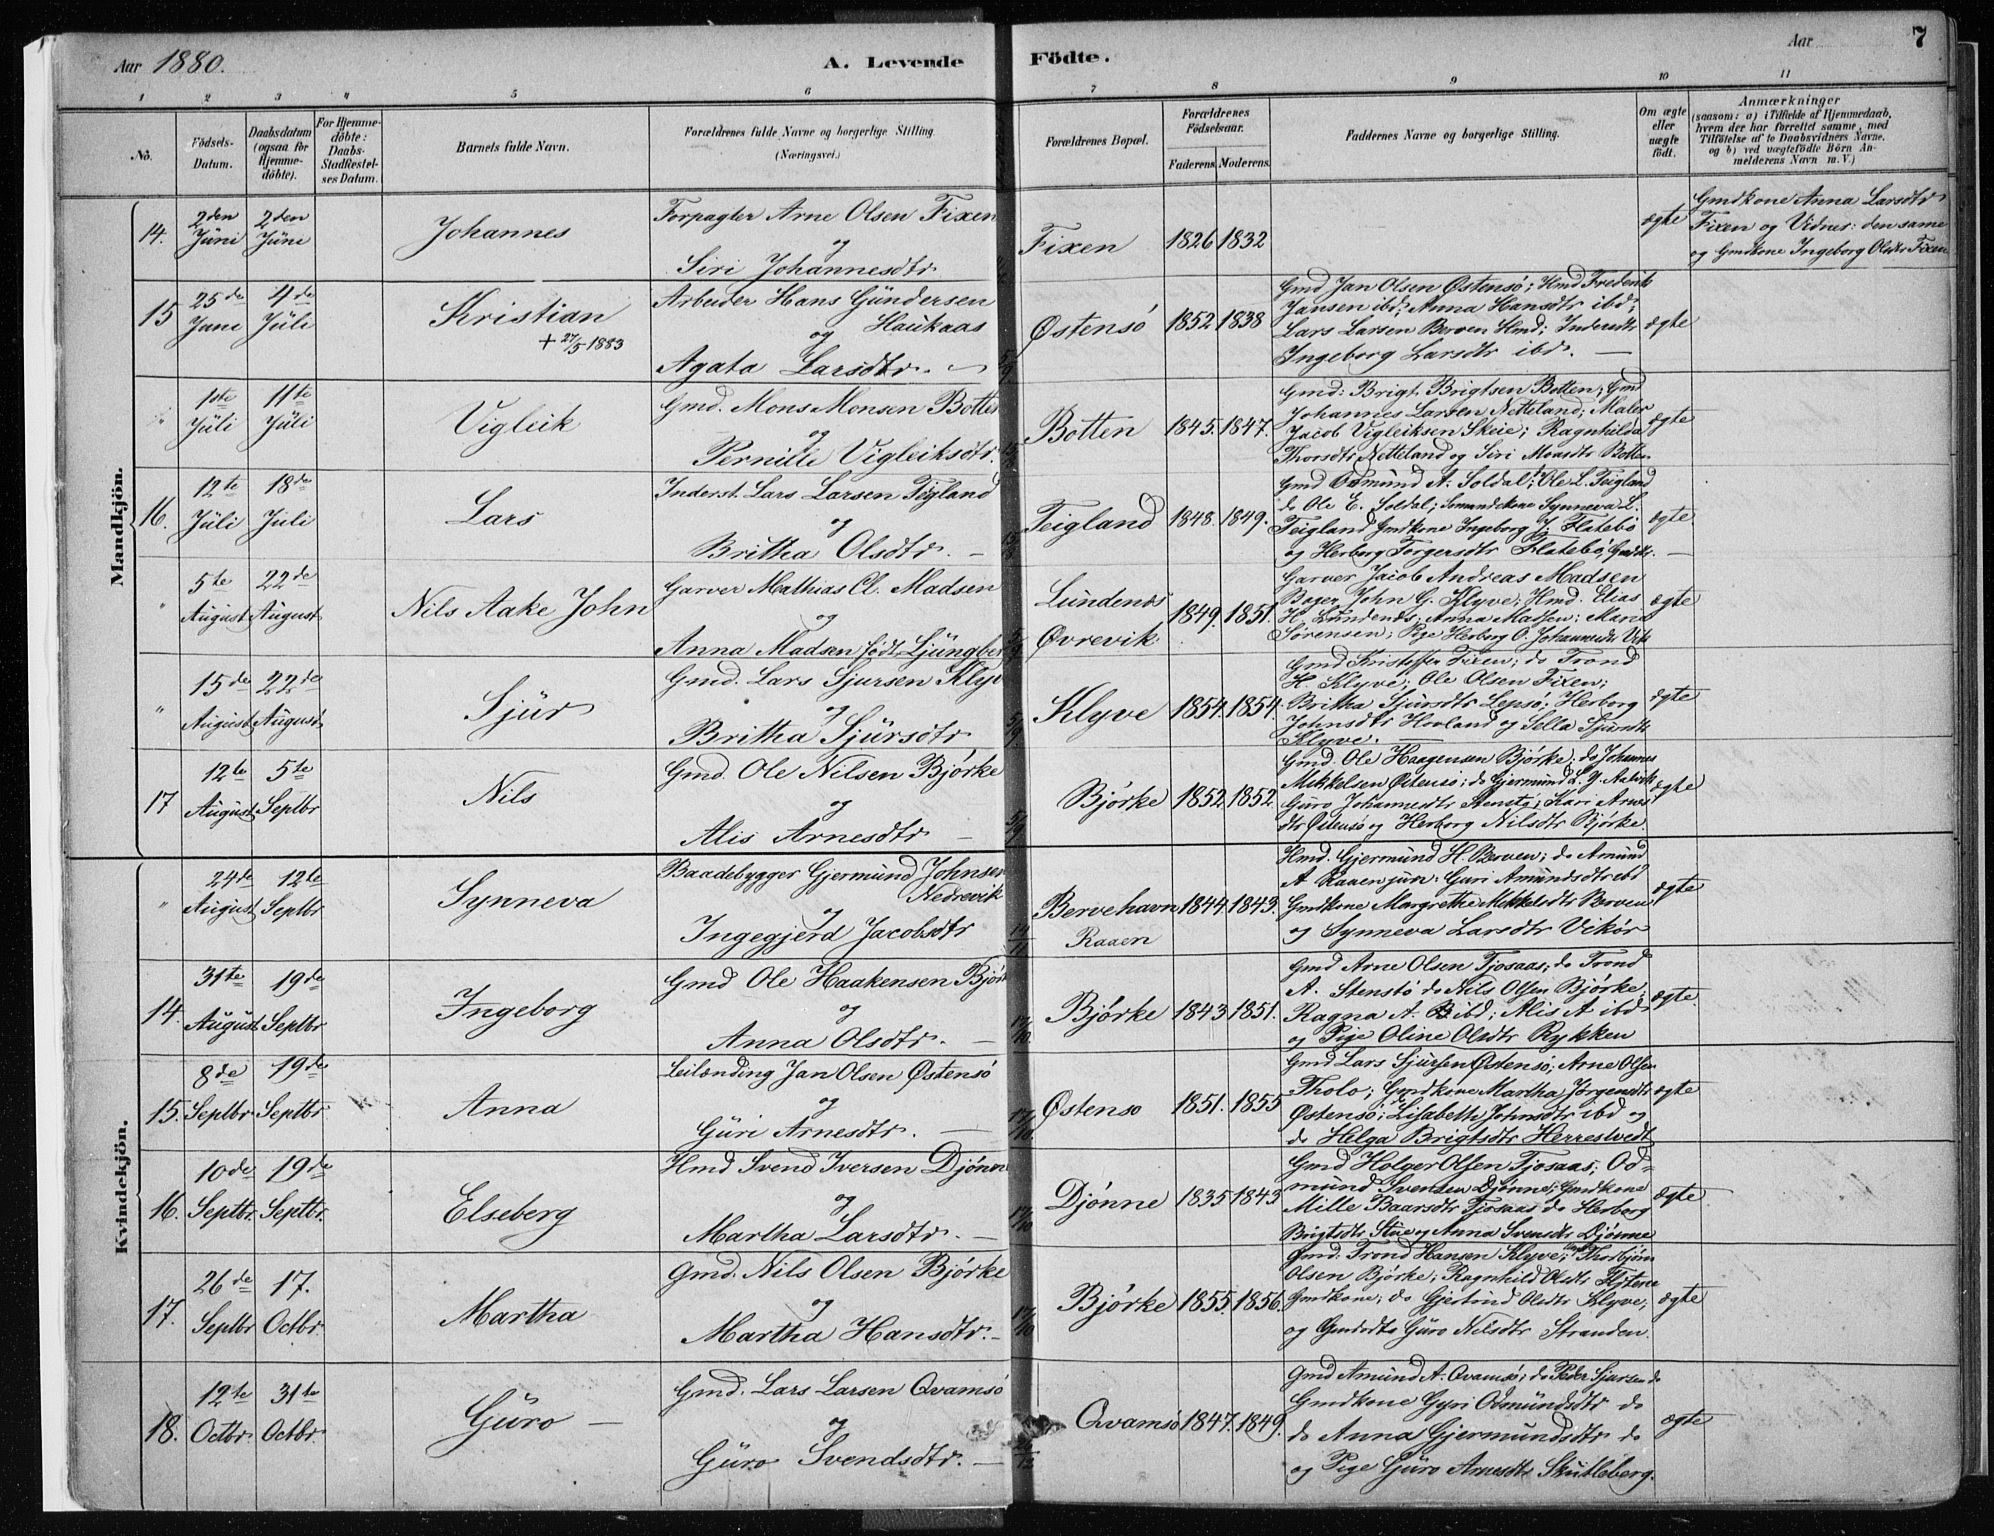 Aar 1880.
A. Levende Födte.
Aar
7
1 2 3 4 5 6 7 8 9 10 11
No.
Födsels-Datum.
Daabsdatum (ogsaa for Hjemme-döbte).
For Hjemme-döbte: Daabs-Stadfæstel-ses Datum.
Barnets fulde Navn.
Forældrenes fulde Navne og borgerlige Stilling.
(Næringsvei.)
Forældrenes Bopæl.
Forældrenes Födselsaar.
Faderens. Moderens.
Faddernes Navne og borgerlige Stilling.
Om ægte eller uægte födt.
Anmærkninger
(saasom: a) i Tilfælde af Hjemmedaab,
hvem der har forrettet samme, med
Tilföielse af to Daabsvidners Navne.
og b) ved uægtefödte Börn An-
melderens Navn m. V.)
Mandkjön.
14. 2den Juni 2den Juni Johannes
Forpagter Arne Olsen Fixen
og
Siri Johannesdtr.
Fixen 1826 1832 ægte
Gmdkone Anna Larsdtr
Fixen og Vidner: den samme
og Gmdkone Ingeborg Olsdtr Fixen
15 25de Juni 4de Juli Kristian
+ 27/5 1883
Arbeider Hans Gundersen
Haukaas
og
Agata Larsdtr.
Østensö 1852 1838
Gmd Jan Olsen Østensö; Hmd Frederik
Jansen ibd; Anna Hansdtr ibd;
Lars Larsen Berven Hmd; Inderstdtr
Ingeborg Larsdtr ibd.
ægte
" 1ste Juli 11te Juli Vigleik
Gmd. Mons Monsen Botten
og
Pernille Vigleiksdtr.
Botten 1845. 1847.
Gmd: Brigt. Brigtsen Botten; Gmd
Johannes Larsen Netteland; Maler
Jacob Vigleiksen Skeie; Ragnhilda
Thorsdtr Netteland og Siri Monsdtr Botten
ægte
16. 12te Juli 18de Juli Lars
Inderst. Lars Larsen Teigland
og
Britha Olsdtr.
Teigland 1848. 1849.
Gmd Odmund A. Soldal; Ole L. Teigland
do Ole E. Soldal; Synneva L.
Teigland Gmdkone Ingeborg J. Flatebö
og Herborg Torgersdtr Flatebö,
ægte
" 5te August 22de August Nils Aake John
Garver Mathias Cl. Madsen
og
Anna Madsen födt Ljungber
Lundenæs
Øvrevik
1849. 1851.
Garver Jacob Andreas Madsen
Bager John G. Klyve; Hmd. Elias
H. Lundenæs; Anna Madsen; Maria
Sörensen; Pige Herborg O. Johannesdtr Vik
ægte
" 15de August 22de August Sjur
Gmd. Lars Sjursen Klyv
og
Britha Sjursdtr
Klyve 1854. 1854.
Gmd Kristoffer Fixen; do Trond
H. Klyve; Ole Olsen Fixen;
Britha Sjursdtr Lepsö; Herborg
Johnsdtr Hovland og Sella Sjursdtr
Klyve.
ægte
17 12te August 5te Septbr Nils
Gmd. Ole Nilsen Bjørke
og
Alis Arnesdtr
Bjørke 1852 1852
Gmd. Ole Haagensen Bjørke; do Johannes
Mikkelsen Østensö; do Gjermund L. Y. Aalvik
Guro Johannesdtr Stenstö; Kari Arnes
dtr Østensö og Herborg Nilsdtr Bjørke.
ægte
Kvindekjön.
" 24de August 12te Septbr Synneva
Baadebygger Gjermund Johnsen
Nedrevik
og
Ingegjerd Jacobsdtr
Bervehavn
Raaen
1844. 1843.
Hmd. Gjermund H. Berven; do Amund
A. Raaen jun: Guri Amundsdtr ibd
Gmdkone Margrethe Mikkelsdtr Berven
og Synneva Larsdtr Vikör
ægte
14. 31te August 19de Septbr Ingeborg
Gmd Ole Haakensen Björ
og
Anna Olsdtr.
Bjørke 1843 1851.
Gmd Arne Olsen Tjosaas; do Trond
A. Stenstö do Nils Olsen Bjørke;
Ragna A. B ibd; Alis A ibd
og Pige Oline Olsdtr Rykken
ægte
15. 8de Septbr 19de Septbr Anna
Leilænding Jan Olsen Østensö
og
Guri Arnesdtr.
Østensö 1851. 1855
Gmd Lars Sjursen Østensö; Arne Olsen
Tholo; Gmdkone Martha Jörgensdtr
Østensö; Lisabeth Johnsdtr ibd og
do Helga Brigtsdtr Herrestvedt
ægte
16. 10de Septbr. 19de Septbr. Elseberg
Hmd Svend Iversen Djönn
og
Martha Larsdtr.
Djönne 1835 1843
Gmd Holger Olsen Tjosaas; Od-
mund Svensen Djönne; Gmdkone
Mille Baarsdtr Tjosaas do Herborg
Brigtsdtr og Anna Svensdtr Djönne
ægte
17. 26de Septbr 17. Octbr. Martha
Gmd. Nils Olsen Bjørke
og
Martha Hansdtr.
Bjørke 1855. 1856.
Gmd: Trond Hansen Klyve; Thorbjörn
Olsen Bjørke; Ragnhild Olsdtr
Gmdkone; do Gjertrud Olsdtr Klyve;
og Guro Nilsdtr Stranden.
ægte
18. 12te Octbr. 31te Octbr. Guro
Gmd. Lars Larsen Qvamsö
og
Guro Svendsdtr.
Qvamsö 1847. 1849.
Gmd Amund A. Qvamsö; do Peder Sjursen do
Gmdkone Gyri Odmundsdtr do
do Anna Gjermundsdtr do
og Pige Guro Arnesdtr Skutleberg.
ægte